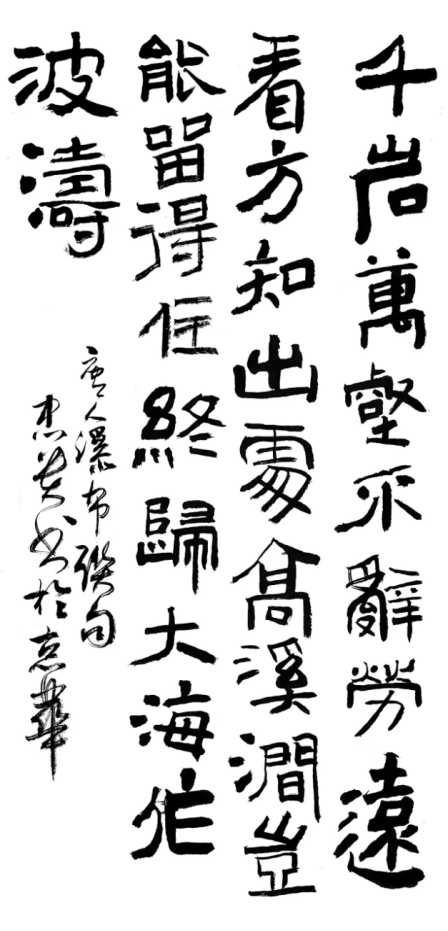 千岩萬壑不辭勞遠
看方知出處高溪澗豈
能留得住終歸大海作
波濤
唐人瀑布聯句
书於京華